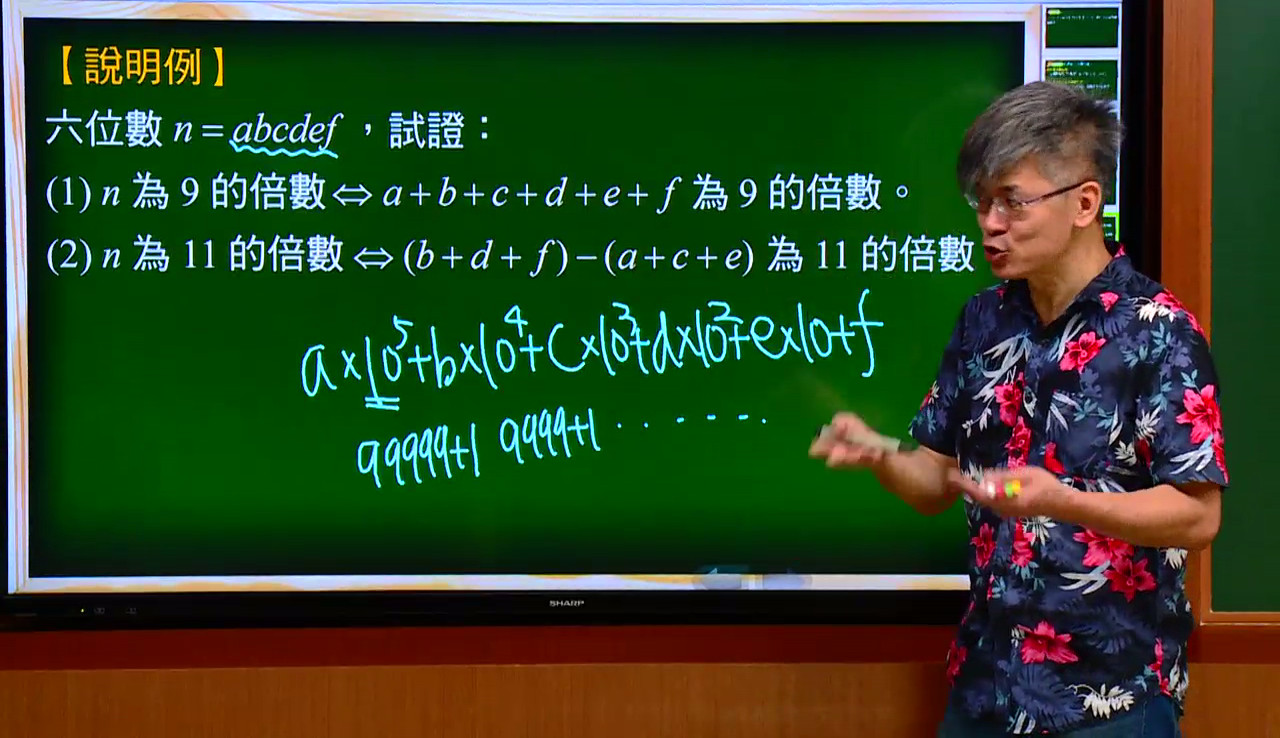 【說明例】
六位數 n = abcdef ，試證：
(1) n 為 9 的倍數 ⇔ a + b + c + d + e + f 為 9 的倍數。
(2) n 為 11 的倍數 ⇔ (b + d + f) − (a + c + e) 為 11 的倍數
a×10⁵+b×10⁴+c×10³+d×10²+e×10+f
99999+1 9999+1 · · · · · ·
SHARP